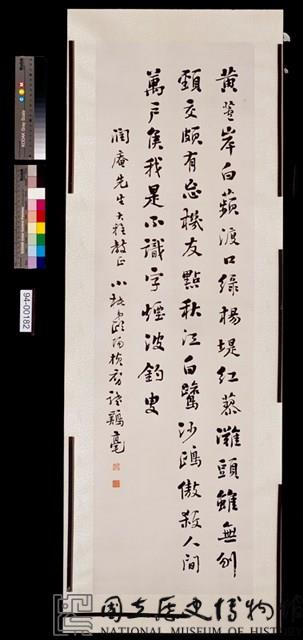 黃蘆岸白蘋渡口綠楊堤紅蓼灘頭雖無刎
頸交頗有忘機友點秋江白鷺沙鷗傲殺人間
萬戶侯我是不識字煙波釣叟
潤庵先生大雅教正
94-00182
國立歷史博物館
NATIONAL MUSEUM OF HIST